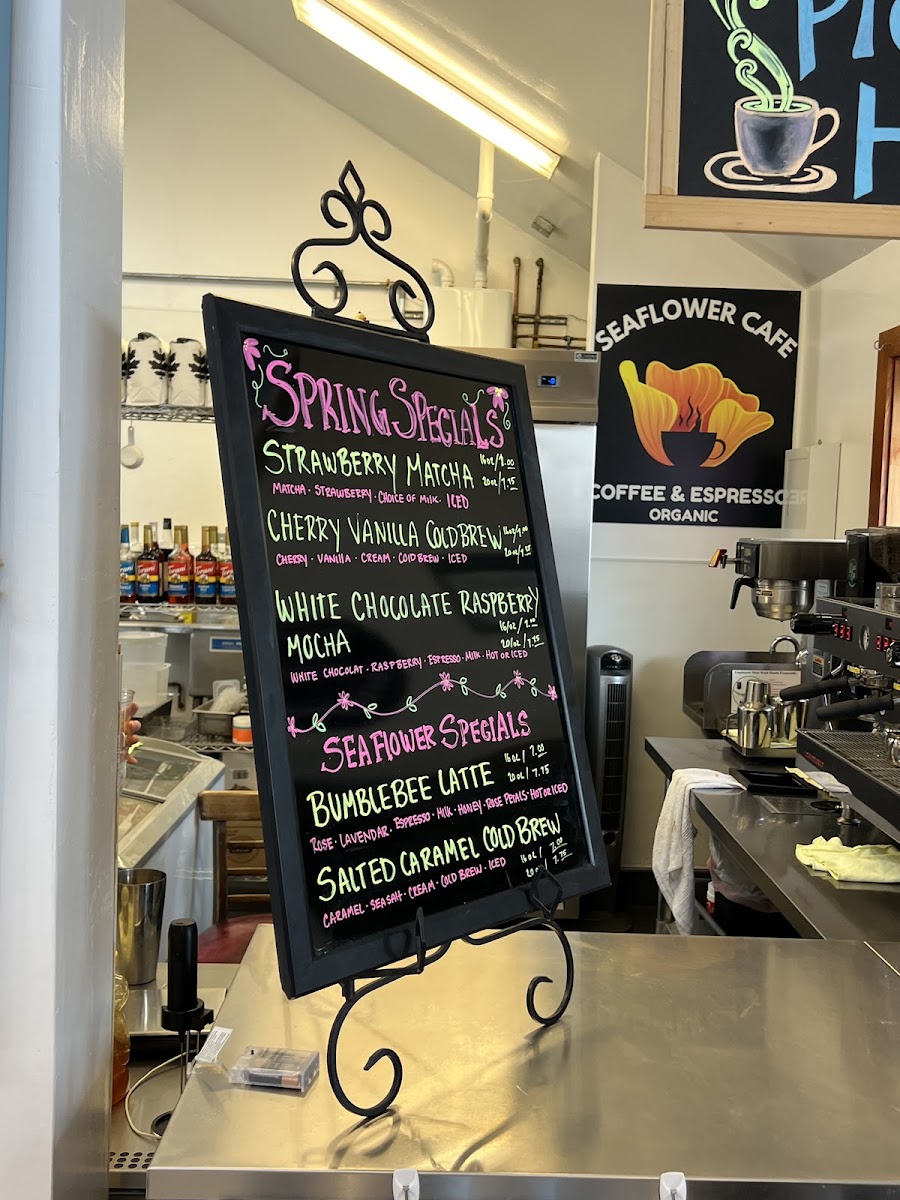 SPRING SPECIALS
STRAWBERRY MATCHA
20oz/7.75
MATCHA · STRAWBERRY · CHOICE OF MILK · ICED
CHERRY VANILLA COLDBREW
CHERRY · VANILLA · CREAM · COLD BREW · ICED
WHITE CHOCOLATE RASPBERRY
MOCHA
20oz / 7.75
WHITE CHOCOLAT · RASPBERRY · ESPRESSO · MILK · HOT OR ICED
SEAFLOWER SPECIALS
BUMBLEBEE LATTE
16oz / 7.00
20oz / 7.75
ROSE · LAVENDAR · ESPRESSO · MILK · HONEY · ROSE PETALS · HOT OR ICED
SALTED CARAMEL COLD BREW
16oz / 7.00
CARAMEL · SEASALT · CREAM · COLD BREW · ICED
SEAFLOWER CAFE
COFFEE & ESPRESSO
ORGANIC